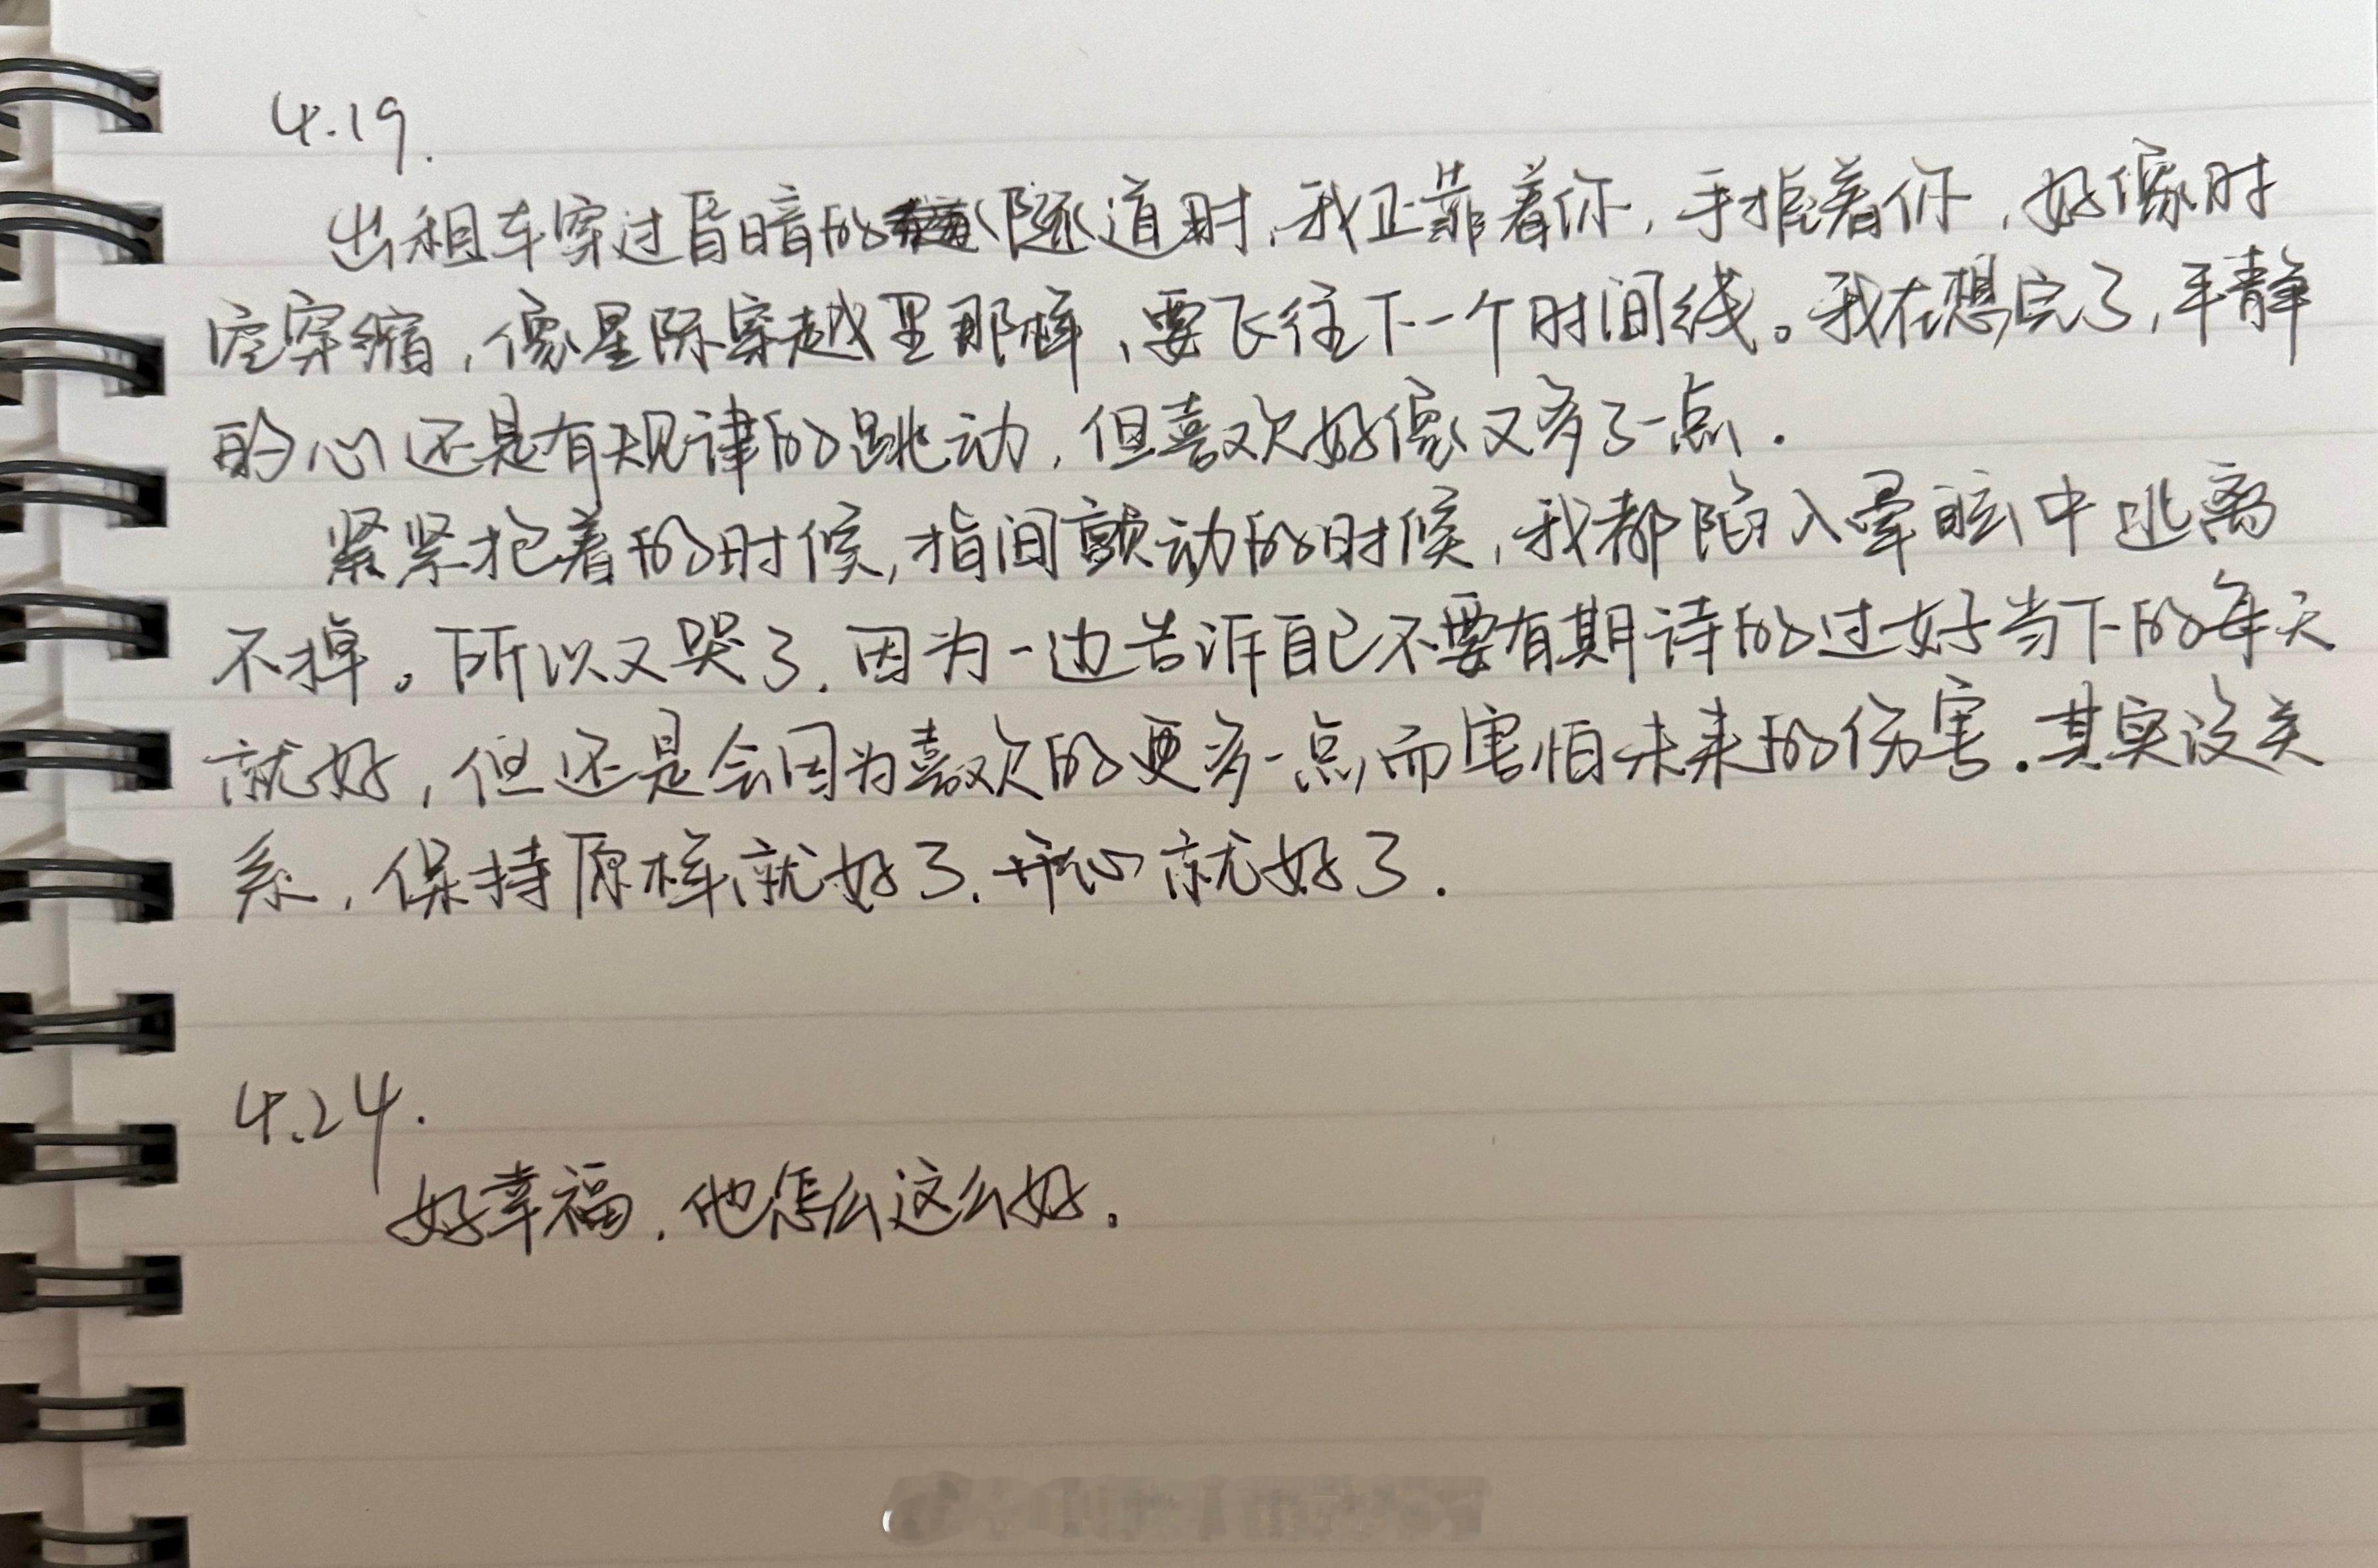 4.19.
出租车穿过昏暗的隧道时,我正靠着你,手抱着你,好像时
空穿缩,像星际穿越里那样、要飞往下一个时间线。我在想完了,平静
的心还是有规律的跳动,但喜欢好像又多了一点.
紧紧抱着的时候,指间颤动的时候,我都陷入晕眩中逃离
不掉。所以又哭了.因为一边告诉自己不要有期待的过好当下的每天
就好,但还是会因为喜欢的更多一点而害怕未来的伤害.其实没关
系,保持原样就好了.开心就好了.
4.24.
好幸福.他怎么这么好.